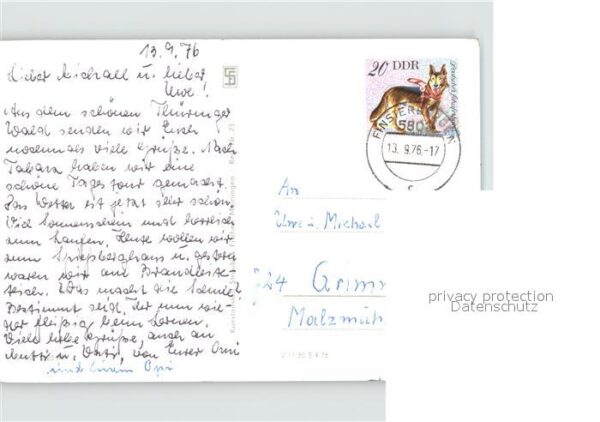 13.9.76
Lieber Michael u. lieber
Uwe!
Aus dem schönen Thüringer
Wald senden wir Euch
nochmals viele Grüße. Nach
Tabarz haben wir eine
schöne Tagestour gemacht.
Das Wetter ist jetzt aber schön.
Viel Sonnenschein und herrlich
zum Laufen. Heute wollen wir
zum Spießberghaus u. gestern
waren wir am
teich. Was macht die Schule?
Bestimmt seid Ihr nun wie-
der fleißig beim Lernen.
Viele liebe Grüße, auch an
Mutti u. Vati, von Eurer Omi
und Eurem Opi
20 DDR
FINSTERBERGEN
580
13.9.76-17
c
An
Uwe u. Michael
724 Grimm
Malzmüh
V 11 50 S 4/76
privacy protection
Datenschutz